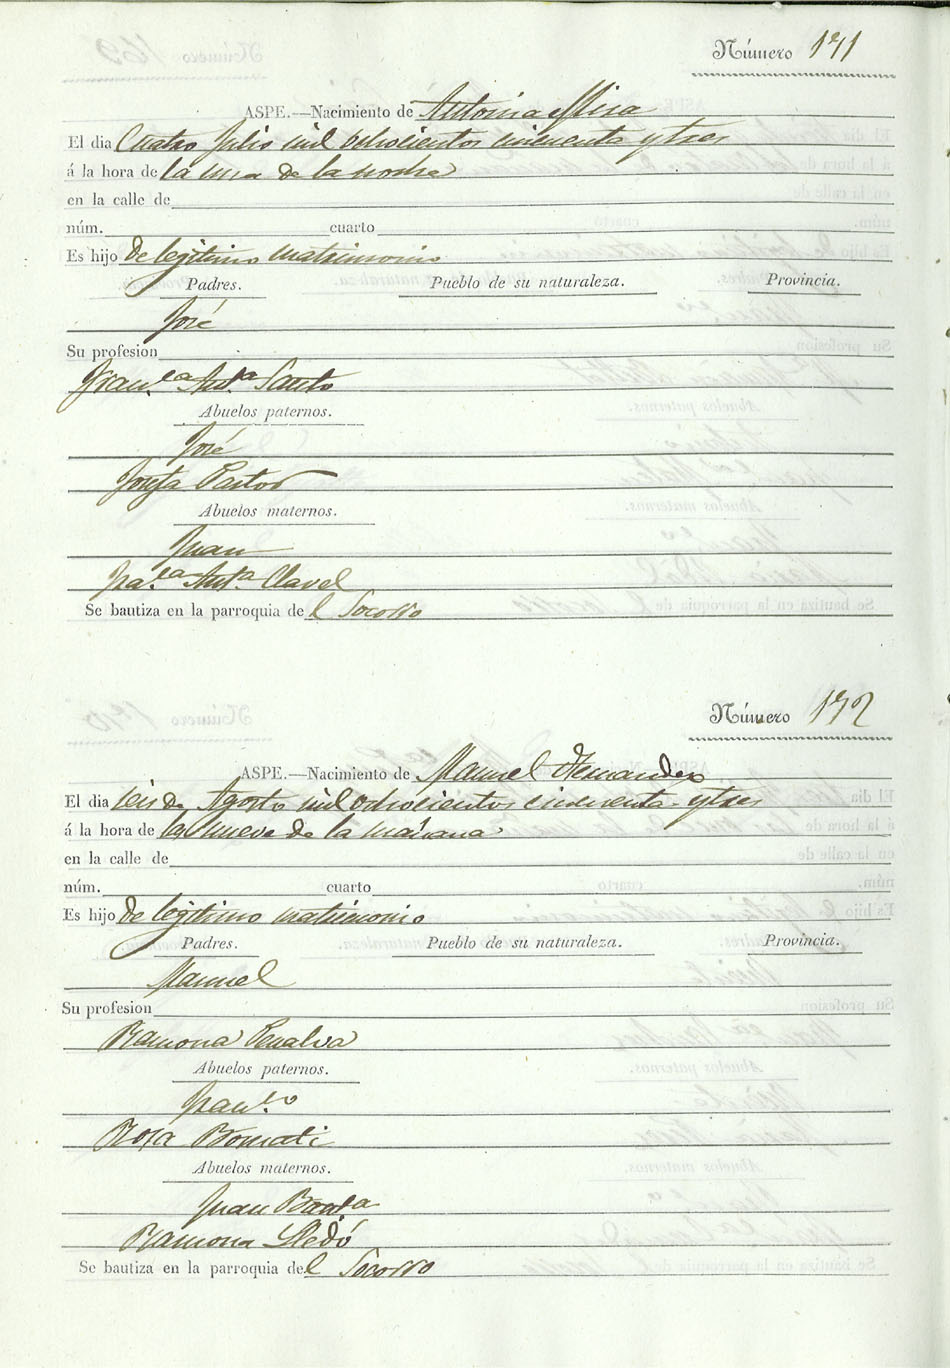 Número 171
ASPE.—Nacimiento de Antonia Mira
El dia Cuatro Julio mil ochocientos cincuenta y tres
á la hora de la una de la noche
en la calle de
núm. cuarto
Es hijo de legitimo matrimonio
Padres. Pueblo de su naturaleza. Provincia.
José
Su profesion
Fran.ca Ant.a Santo
Abuelos paternos.
José
Josefa Pastor
Abuelos maternos.
Juan
Fra.ca Ant.a Clavel
Se bautiza en la parroquia del Socorro
Número 172
ASPE.—Nacimiento de Manuel Hernandez
El dia seis de Agosto mil ochocientos cincuenta y tres
á la hora de la nueve de la mañana
en la calle de
núm. cuarto
Es hijo de legitimo matrimonio
Padres. Pueblo de su naturaleza. Provincia.
Manuel
Su profesion
Ramona Penalva
Abuelos paternos.
Fran.co
Rosa Bonati
Abuelos maternos.
Juan Baut.a
Ramona Lledó
Se bautiza en la parroquia del Socorro